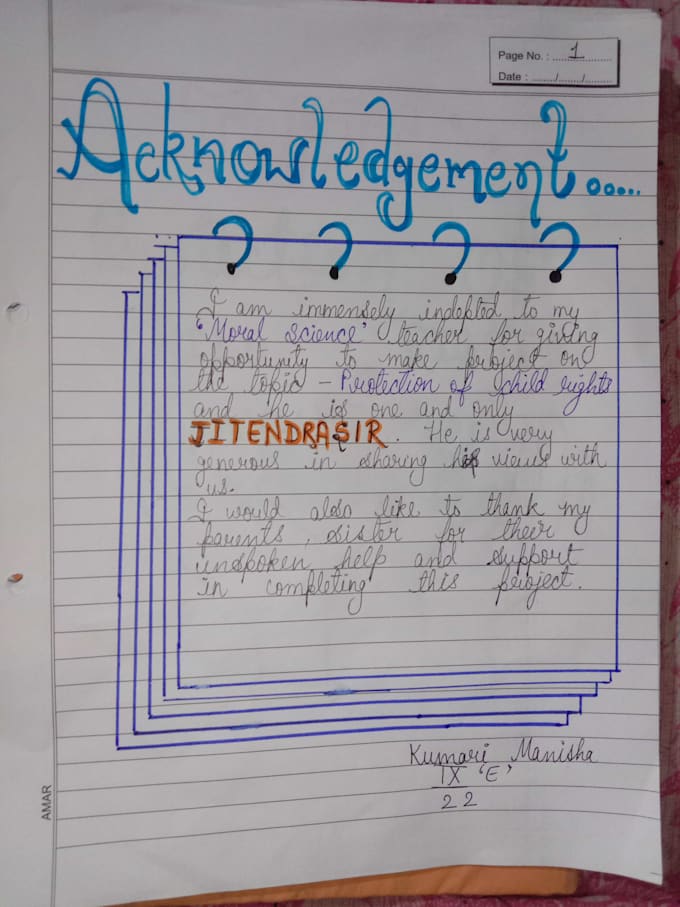 Page No. : 1
Date : ...../...../.....
Acknowledgement.....
I am immensely indepted to my
'Moral Science' teacher for giving
opportunity to make project on
the topic - Protection of child rights
and he is one and only
JITENDRA SIR. He is very
generous in sharing his views with
us.
I would also like to thank my
parents, sister for their
unspoken help and support
in completing this project.
Kumari Manisha
IX 'E'
22
AMAR